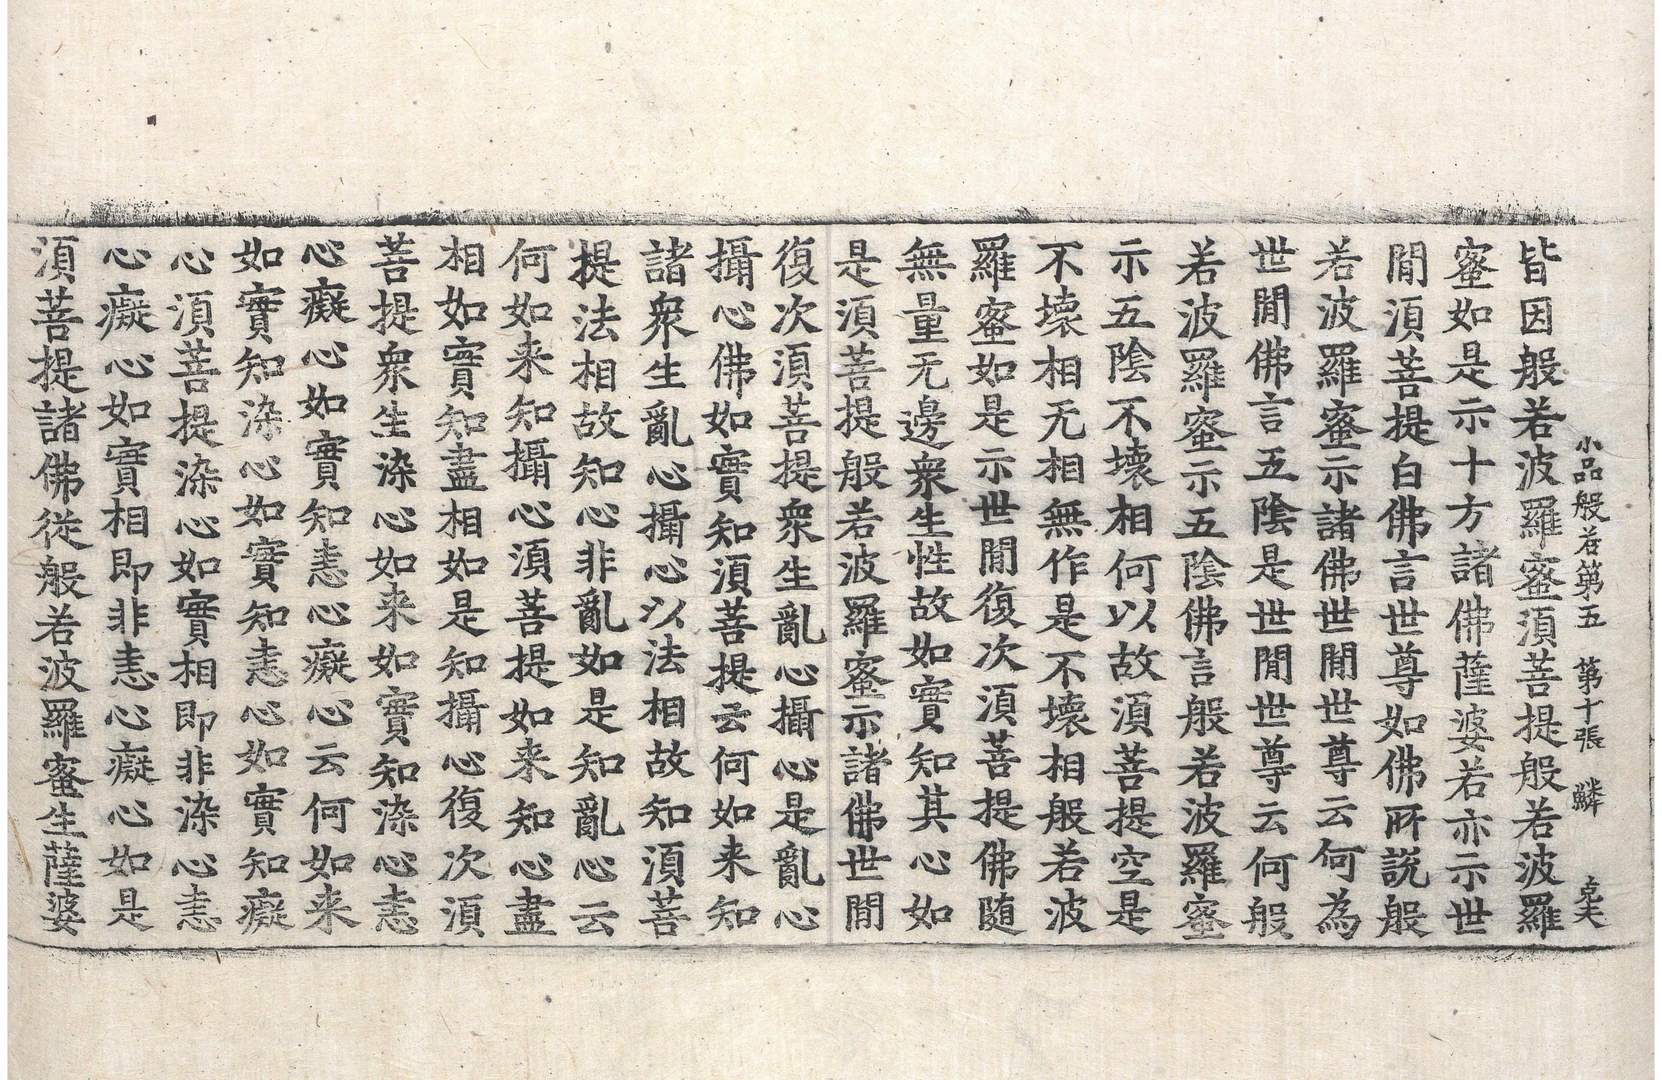 小品般若第五 第十張 鱗 克夫
皆因般若波羅蜜湏菩提般若波羅
蜜如是示十方諸佛薩婆若亦示世
閒湏菩提白佛言世尊如佛所說般
若波羅蜜示諸佛世閒世尊云何為
世閒佛言五陰是世閒世尊云何般
若波羅蜜示五陰佛言般若波羅蜜
示五陰不壞相何以故湏菩提空是
不壞相无相無作是不壞相般若波
羅蜜如是示世閒復次湏菩提佛随
無量无邊衆生性故如實知其心如
是湏菩提般若波羅蜜示諸佛世閒
復次湏菩提衆生亂心攝心是亂心
攝心佛如實知湏菩提云何如来知
諸衆生亂心攝心以法相故知湏菩
提法相故知心非亂如是知亂心云
何如来知攝心湏菩提如来知心盡
相如實知盡相如是知攝心復次湏
菩提衆生染心如来如實知染心恚
心癡心如實知恚心癡心云何如来
如實知染心如實知恚心如實知癡
心湏菩提染心如實相即非染心恚
心癡心如實相即非恚心癡心如是
湏菩提諸佛從般若波羅蜜生薩婆